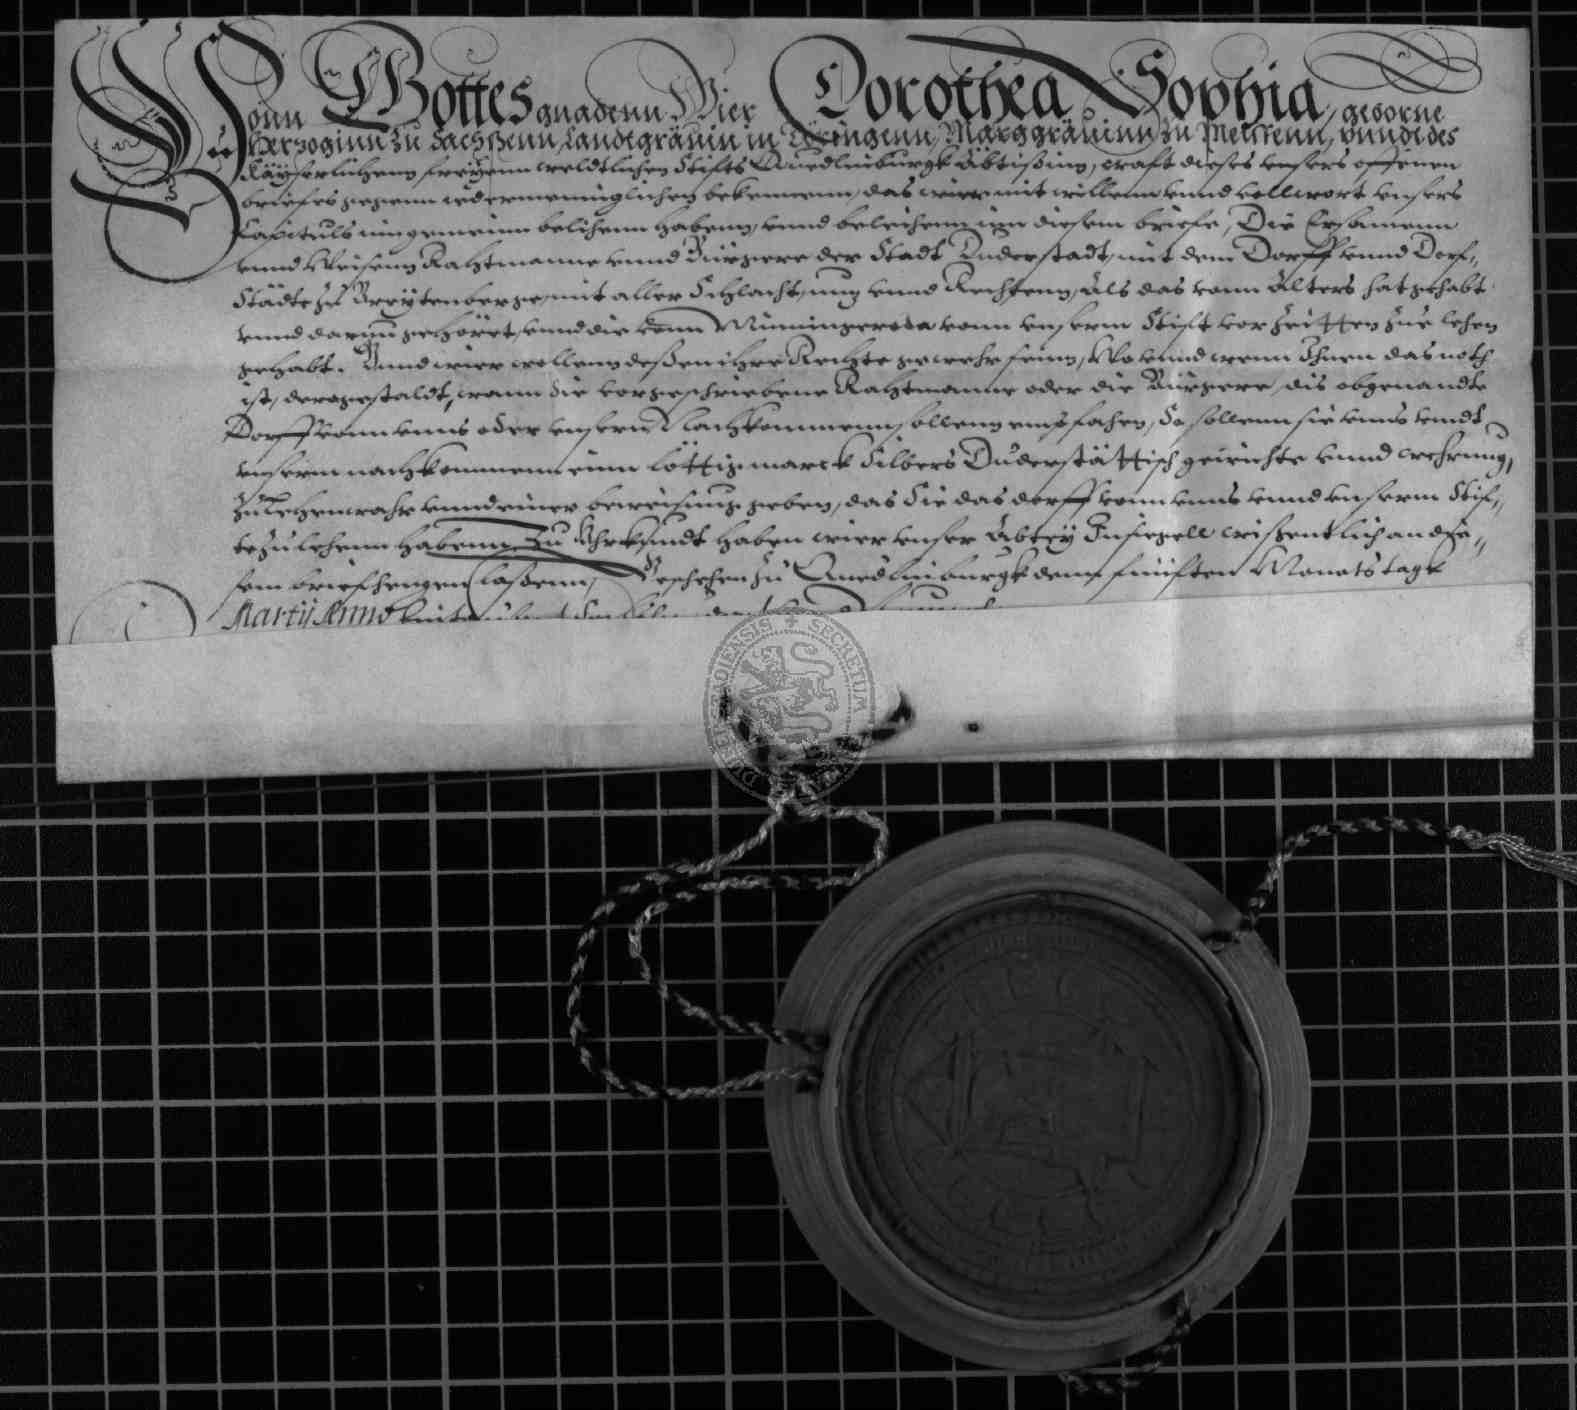 Vonn Gottes gnadenn Wier Dorothea Sophia, geborne
Herzoginn zu Sachßenn, Landtgrävin in Düringenn, Marggrävinn zu Meissenn, unndt des
Käyserlichenn freyenn weldtlichen Stifts Quedlinburgk Äbtißinn, craft dieses unsers offenen
briefes gegenn iedermenniglichen bekennenn, das wier mit willenn unnd vollwort unsers
Capituls inngemeinn belihenn habenn, unnd beleihenn inn diesem briefe, Die Ersamenn
unnd Weisenn Rahtmanne unnd Bürgere der Stadt Duderstadt, mit dem Dorff unnd Dorf-
Städte zu Breytenberge, mit aller Schlachtnung unnd Rechtenn, als das vonn Alters hat gehabt
unnd darzu gehöret, unnd die vonn Minningeroda vonn unserm Stift vor zeitten zue lehen
gehabt. Unnd wier wollenn deßen ihre Rechte gewehr seinn, Wo unnd wenn Ihnen das noth
ist, derogestaldt, wann die vorgeschriebene Rahtmanne oder die Bürgere, dis obgenandte
Dorff vonn unns oder unsern Nachkommenn sollenn empfahen, So sollenn sie unns undt
unserm nachkommenn einn löttig marck Silbers Duderstättisch geivichte unnd wehrung,
zu Lehenwahr unnd einer beweisung geben, das Sie das dorff vonn unns unnd unserm Stif-
te zu lehenn habenn. Zu Uhrkundt haben wier unser Abtey Insiegell wißentlich an die-
sem brief hengen laßenn, Geschehen zu Quedlinburgk denn fünften Monats tagk
Martij Anno
SECRETUM